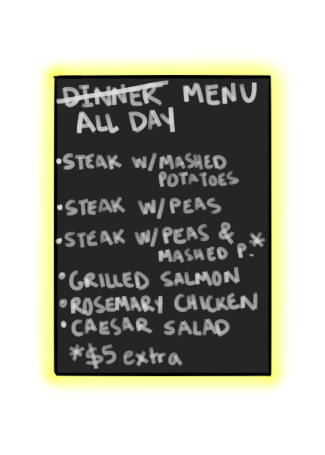 DINNER MENU
ALL DAY
• STEAK W/MASHED
POTATOES
• STEAK W/PEAS
• STEAK W/PEAS &
MASHED P.*
• GRILLED SALMON
• ROSEMARY CHICKEN
• CAESAR SALAD
*$5 extra